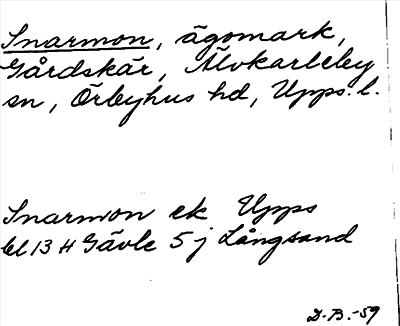 Snarmon, ägomark,
Gårdskär, Älvkarleby
sn, Örbyhus hd, Upps. l.
Snarmon ek Upps
bl 13 H Gävle 5 j Långsand
D.B.-59